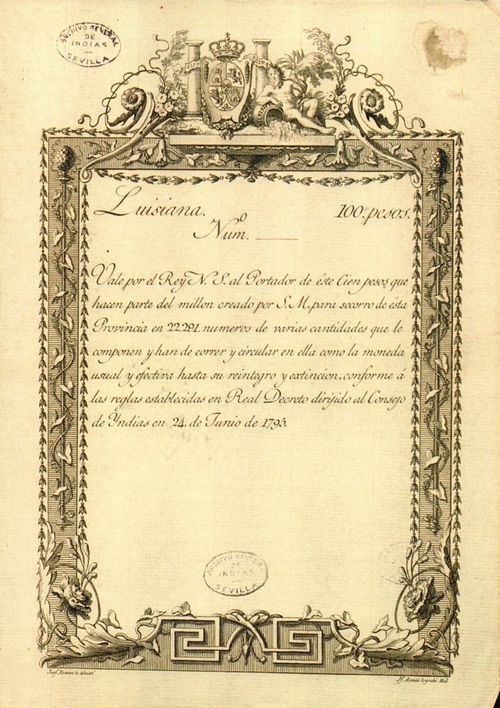 ARCHIVO GENERAL
DE
INDIAS
SEVILLA
Luisiana. 100. pesos.
Num.º
Vale por el Rey N. S. al Portador de éste Cien pesos que
hacen parte del millon creado por S. M. para socorro de esta
Provincia en 22.291. numeros de varias cantidades que le
componen y han de correr y circular en ella como la moneda
usual y efectiva hasta su reintegro y extincion, conforme á
las reglas establecidas en Real Decreto dirijido al Consejo
de Yndias en 24. de Junio de 1795.
ARCHIVO GENERAL
DE
INDIAS
SEVILLA